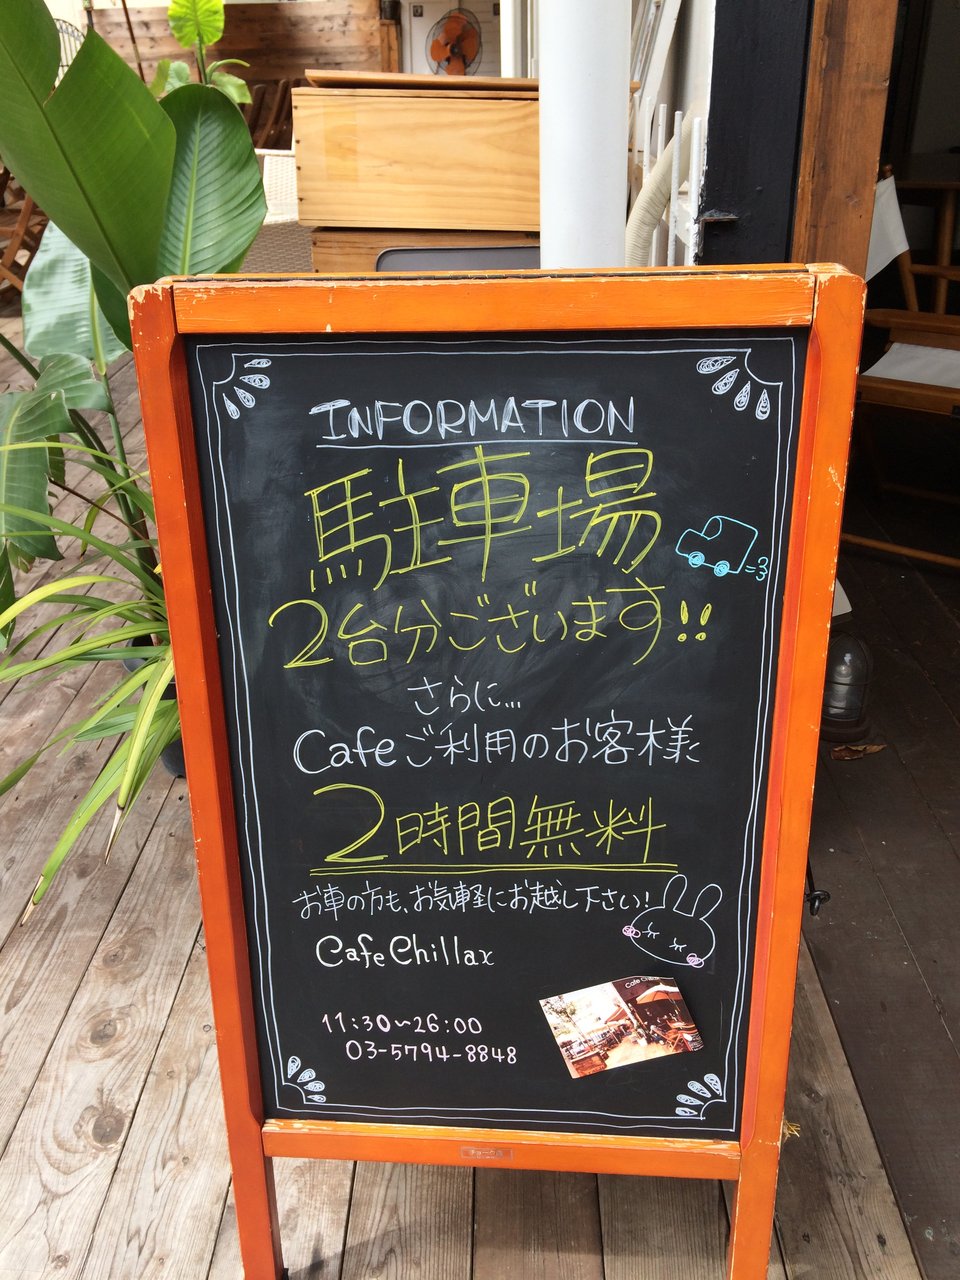 INFORMATION
駐車場
2台分ございます!!
さらに...
Cafeご利用のお客様
2時間無料
お車の方も、お気軽にお越し下さい!
Cafe Chillax
11:30~26:00
03-5794-8848